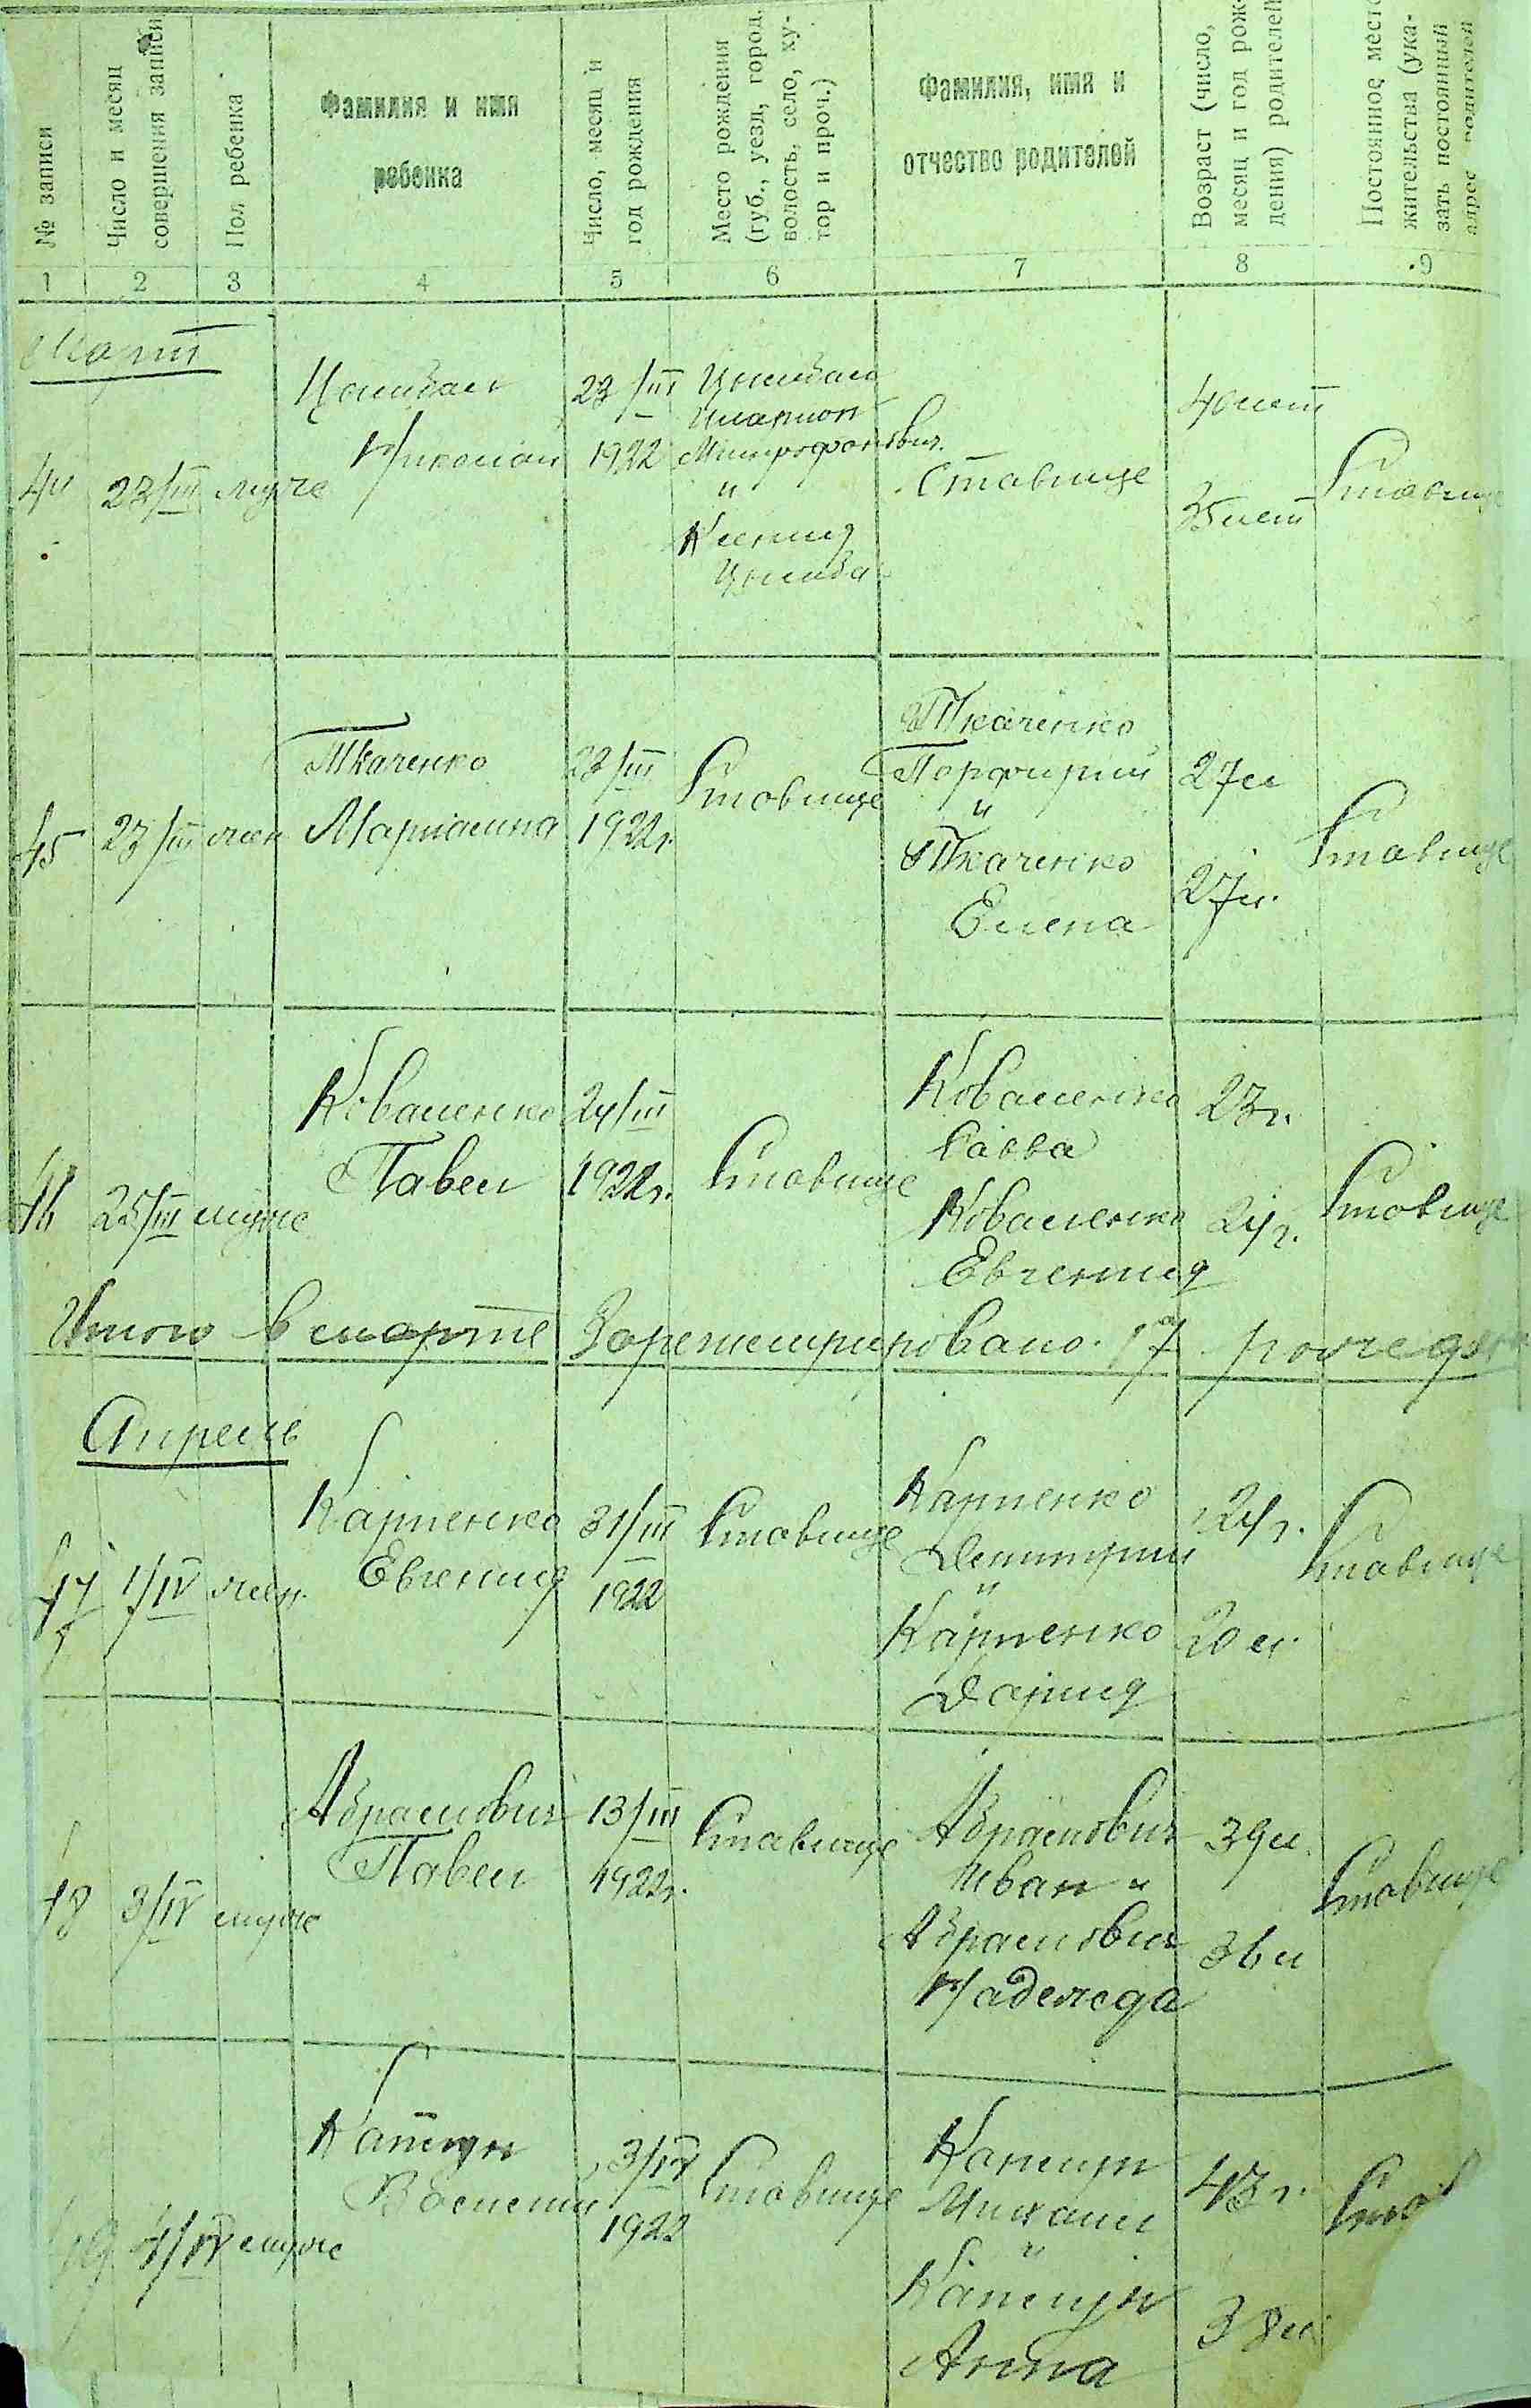 № записи
Число и месяц
совершения записи
Пол ребенка
Фамилия и имя
ребенка
Число, месяц и
год рождения
Место рождения
(губ., уезд, город,
волость, село, ху-
тор и проч.)
Фамилия, имя и
отчество родителей
Возраст (число,
месяц и год рож-
дения) родителей
Постоянное место
жительства (ука-
зать постоянный
адрес родителей
1 2 3 4 5 6 7 8 9
Март
44 23/III муж
Николай
23/III
1922
Иларион
Митрофанович
и
Ксения
Ставище
40 лет
35 лет
Ставище
45 23/III жен
Ткаченко
23/III
1922г.
Ставище
Ткаченко
Порфирий
и
Ткаченко
Елена
27 л
27 л.
Ставище
46 25/III муж
Коваленко
Павел
24/III
1922г.
Ставище
Коваленко
Савва
Коваленко
Евгения
23 г.
24 г.
Ставище
Итого в марте
17
Апрель
47 1/IV жен.
Карпенко
Евгения
31/III
1922
Ставище
Карпенко
Димитрий
и
Карпенко
Дария
24 г.
20 л.
Ставище
48 3/IV муж
Абрамович
Павел
13/III
1922г.
Ставище
Абрамович
Иван и
Абрамович
Надежда
39 л.
36 л
Ставище
49 4/IV муж
3/IV
1922
Ставище
Михаил
и
Анна
43 г.
38 л
Став